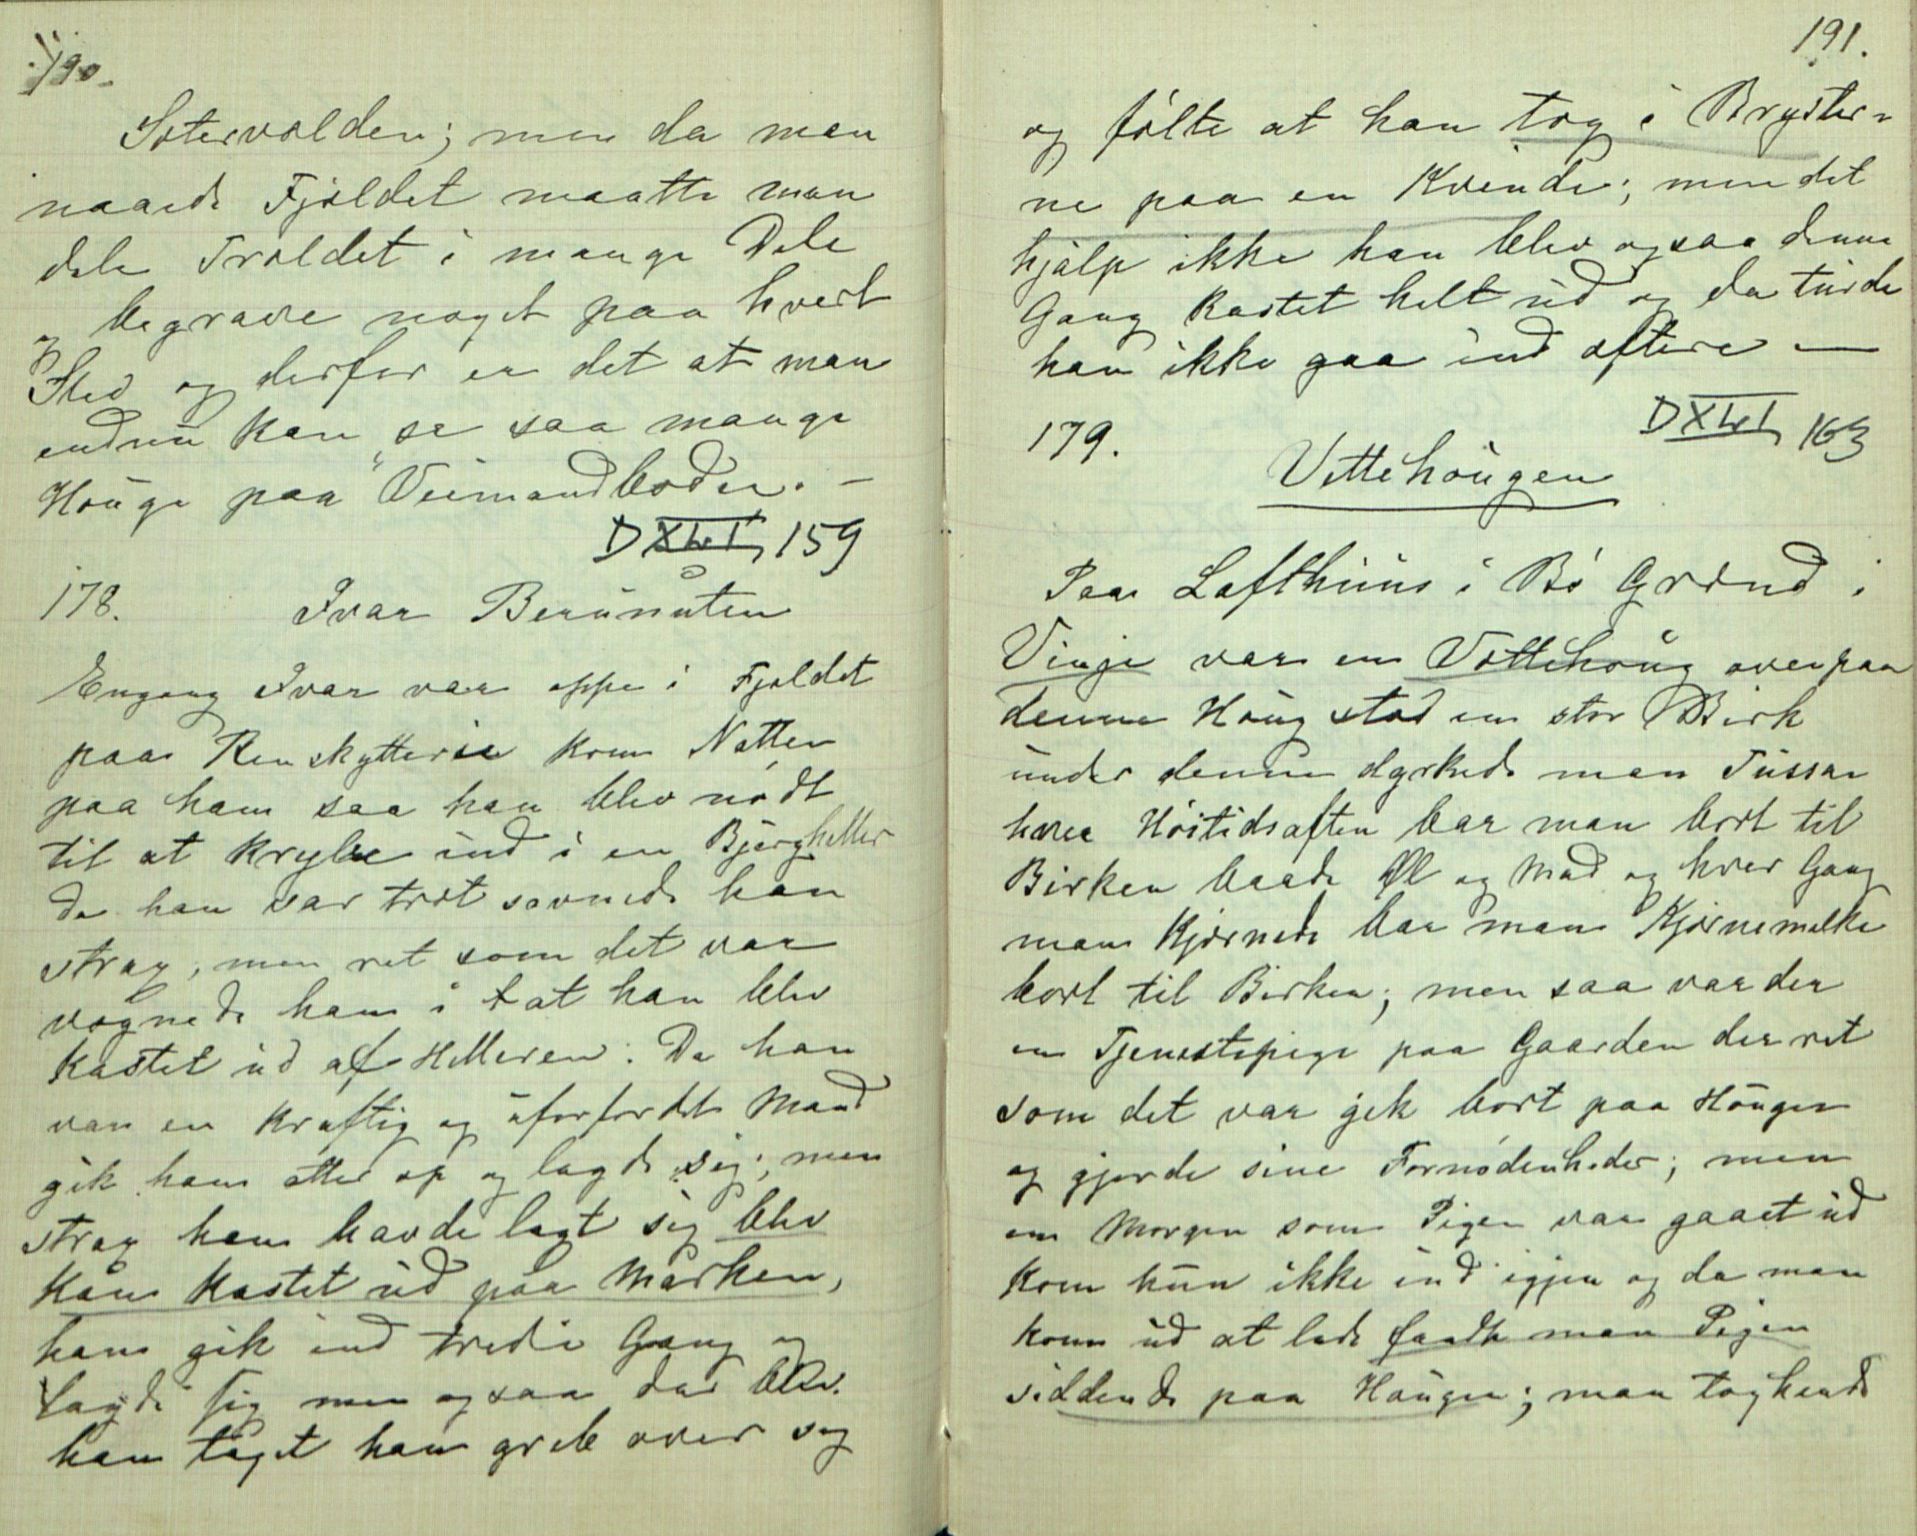 190.
Sætervolden; men da man
naaede Fjeldet maatte man
dele Troldet i mange Dele
og begrave noget paa hvert
Sted og derfor er det at man
endnu kan se saa mange
Houge paa "Veimandboden. –
DXLI, 159
178. Ivar Berünuten
Engang Ivar var oppe i Fjeldet
paa Renskytteri kom Natten
paa ham saa han blev nødt
til at krybe ind i en Bjerg heller
da han var træt sovnede han
strax, men ret som det var
vognede han i at han blev
kastet ud af Helleren. Da han
var en kraftig og uforfærdet Mand
gik han atter op og lagde sig; men
strax han havde lagt sig blev
han kastet ud paa Marken,
han gik ind tredie Gang og
lagde sig men ogsaa da blev
han taget han greb over sig
191.
og følte at han tog i Bryster-
ne paa en Kvinde; men det
hjalp ikke han blev ogsaa denne
Gang kastet helt ud og da turde
han ikke gaa ind oftere —
DXLI, 163
179.
Vettehougen
Paa Lofthuus i Bø Grænd i
Vinje var en Vættehoug oven paa
denne Houg stod en stor Birk
under denne dyrkede man Tussar
hver Høitidsaften bar man bort til
Birken baade Øl og Mad og hver Gang
man Kjærnede bar man Kjærnemelke
bort til Birken; men saa var der
en Tjenestepige paa Gaarden der ret
som det var gik bort paa Hougen
og gjorde sine Fornødenheder; men
en Morgen som Pigen var gaaet ud
kom hun ikke ind igjen og da man
kom ud at lede fandt man Pigen
siddende paa Hougen; man tog hende